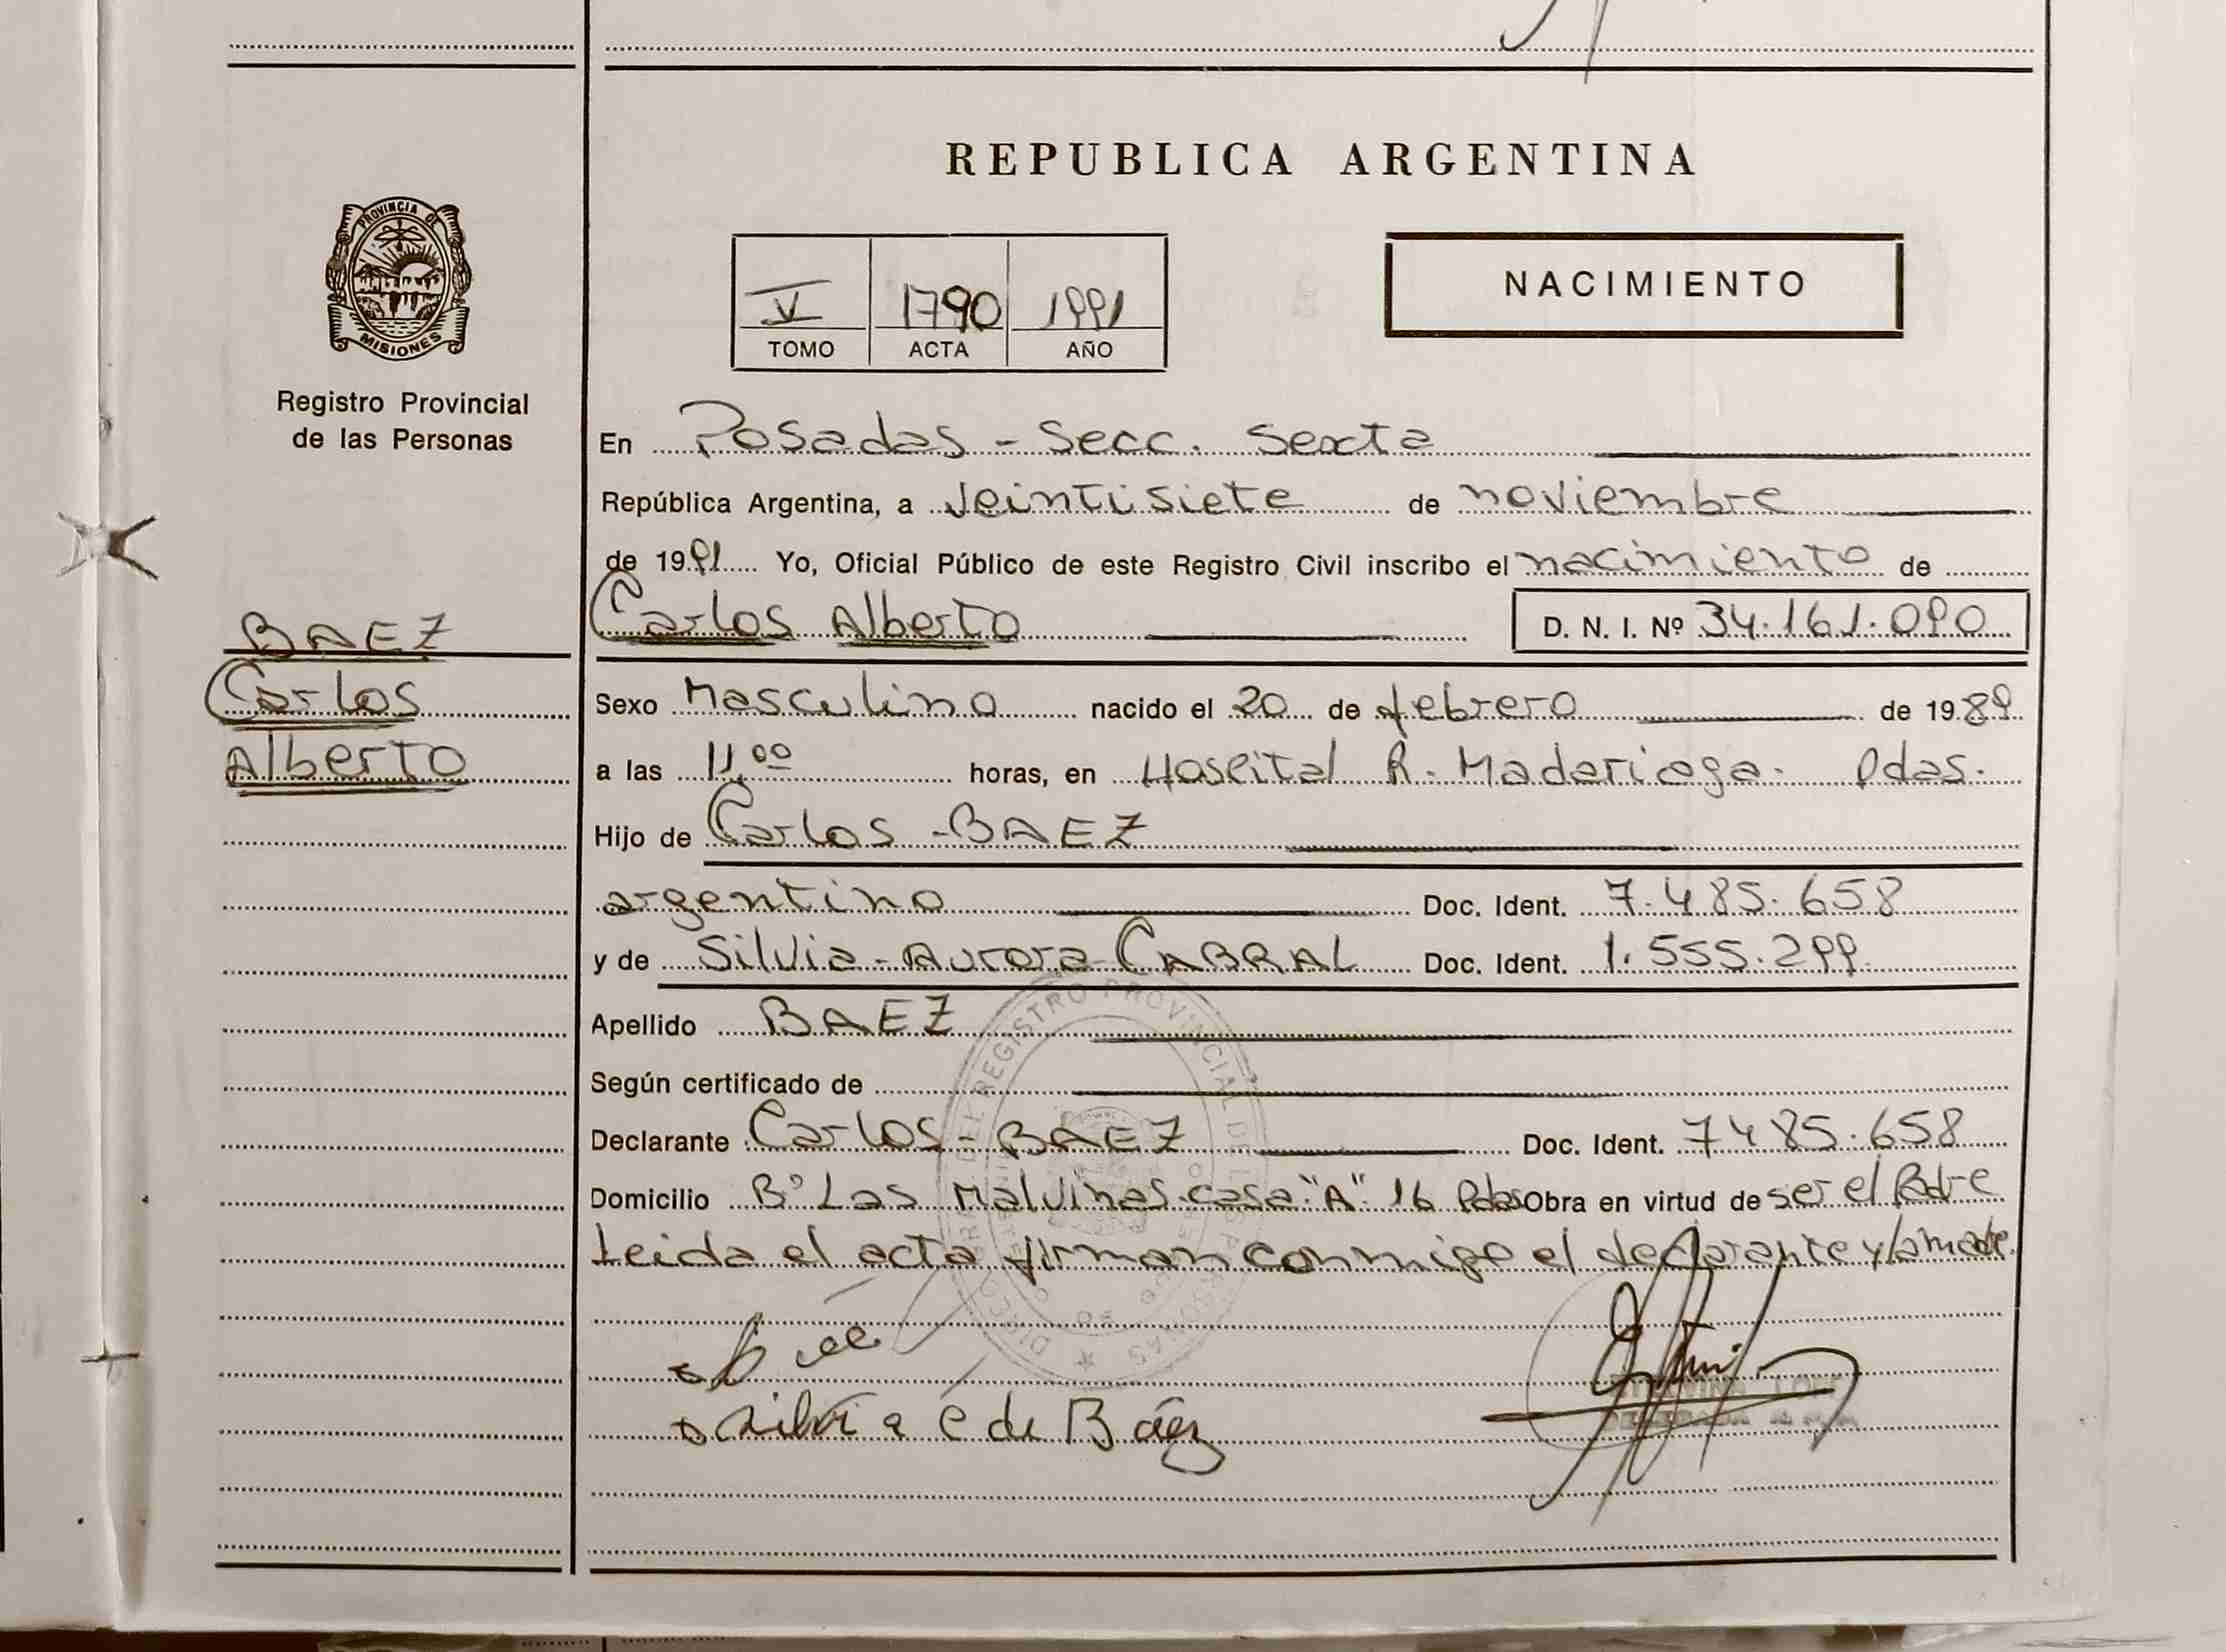 REPUBLICA ARGENTINA
PROVINCIA DE
MISIONES
Registro Provincial
de las Personas
V 1790 1991
TOMO ACTA AÑO
NACIMIENTO
En Posadas - Secc. Sexta
República Argentina, a veintisiete de noviembre
de 1991 Yo, Oficial Público de este Registro Civil inscribo el nacimiento de
Carlos Alberto D. N. I. Nº 34.161.090
BAEZ
Carlos
Alberto
Sexo Masculino nacido el 20 de febrero de 1989
a las 11,00 horas, en Hospital R. Madariaga. Pdas.
Hijo de Carlos - BAEZ
argentino Doc. Ident. 7.485.658
y de Silvia - Aurora CABRAL Doc. Ident. 1.555.299
Apellido BAEZ
Según certificado de
Declarante Carlos - BAEZ Doc. Ident. 7485.658
Domicilio Bº Las Malvinas casa "A" 16 Pdas Obra en virtud de ser el Padre
Leida el acta firman conmigo el declarante y la madre.
Silvia C de Báez